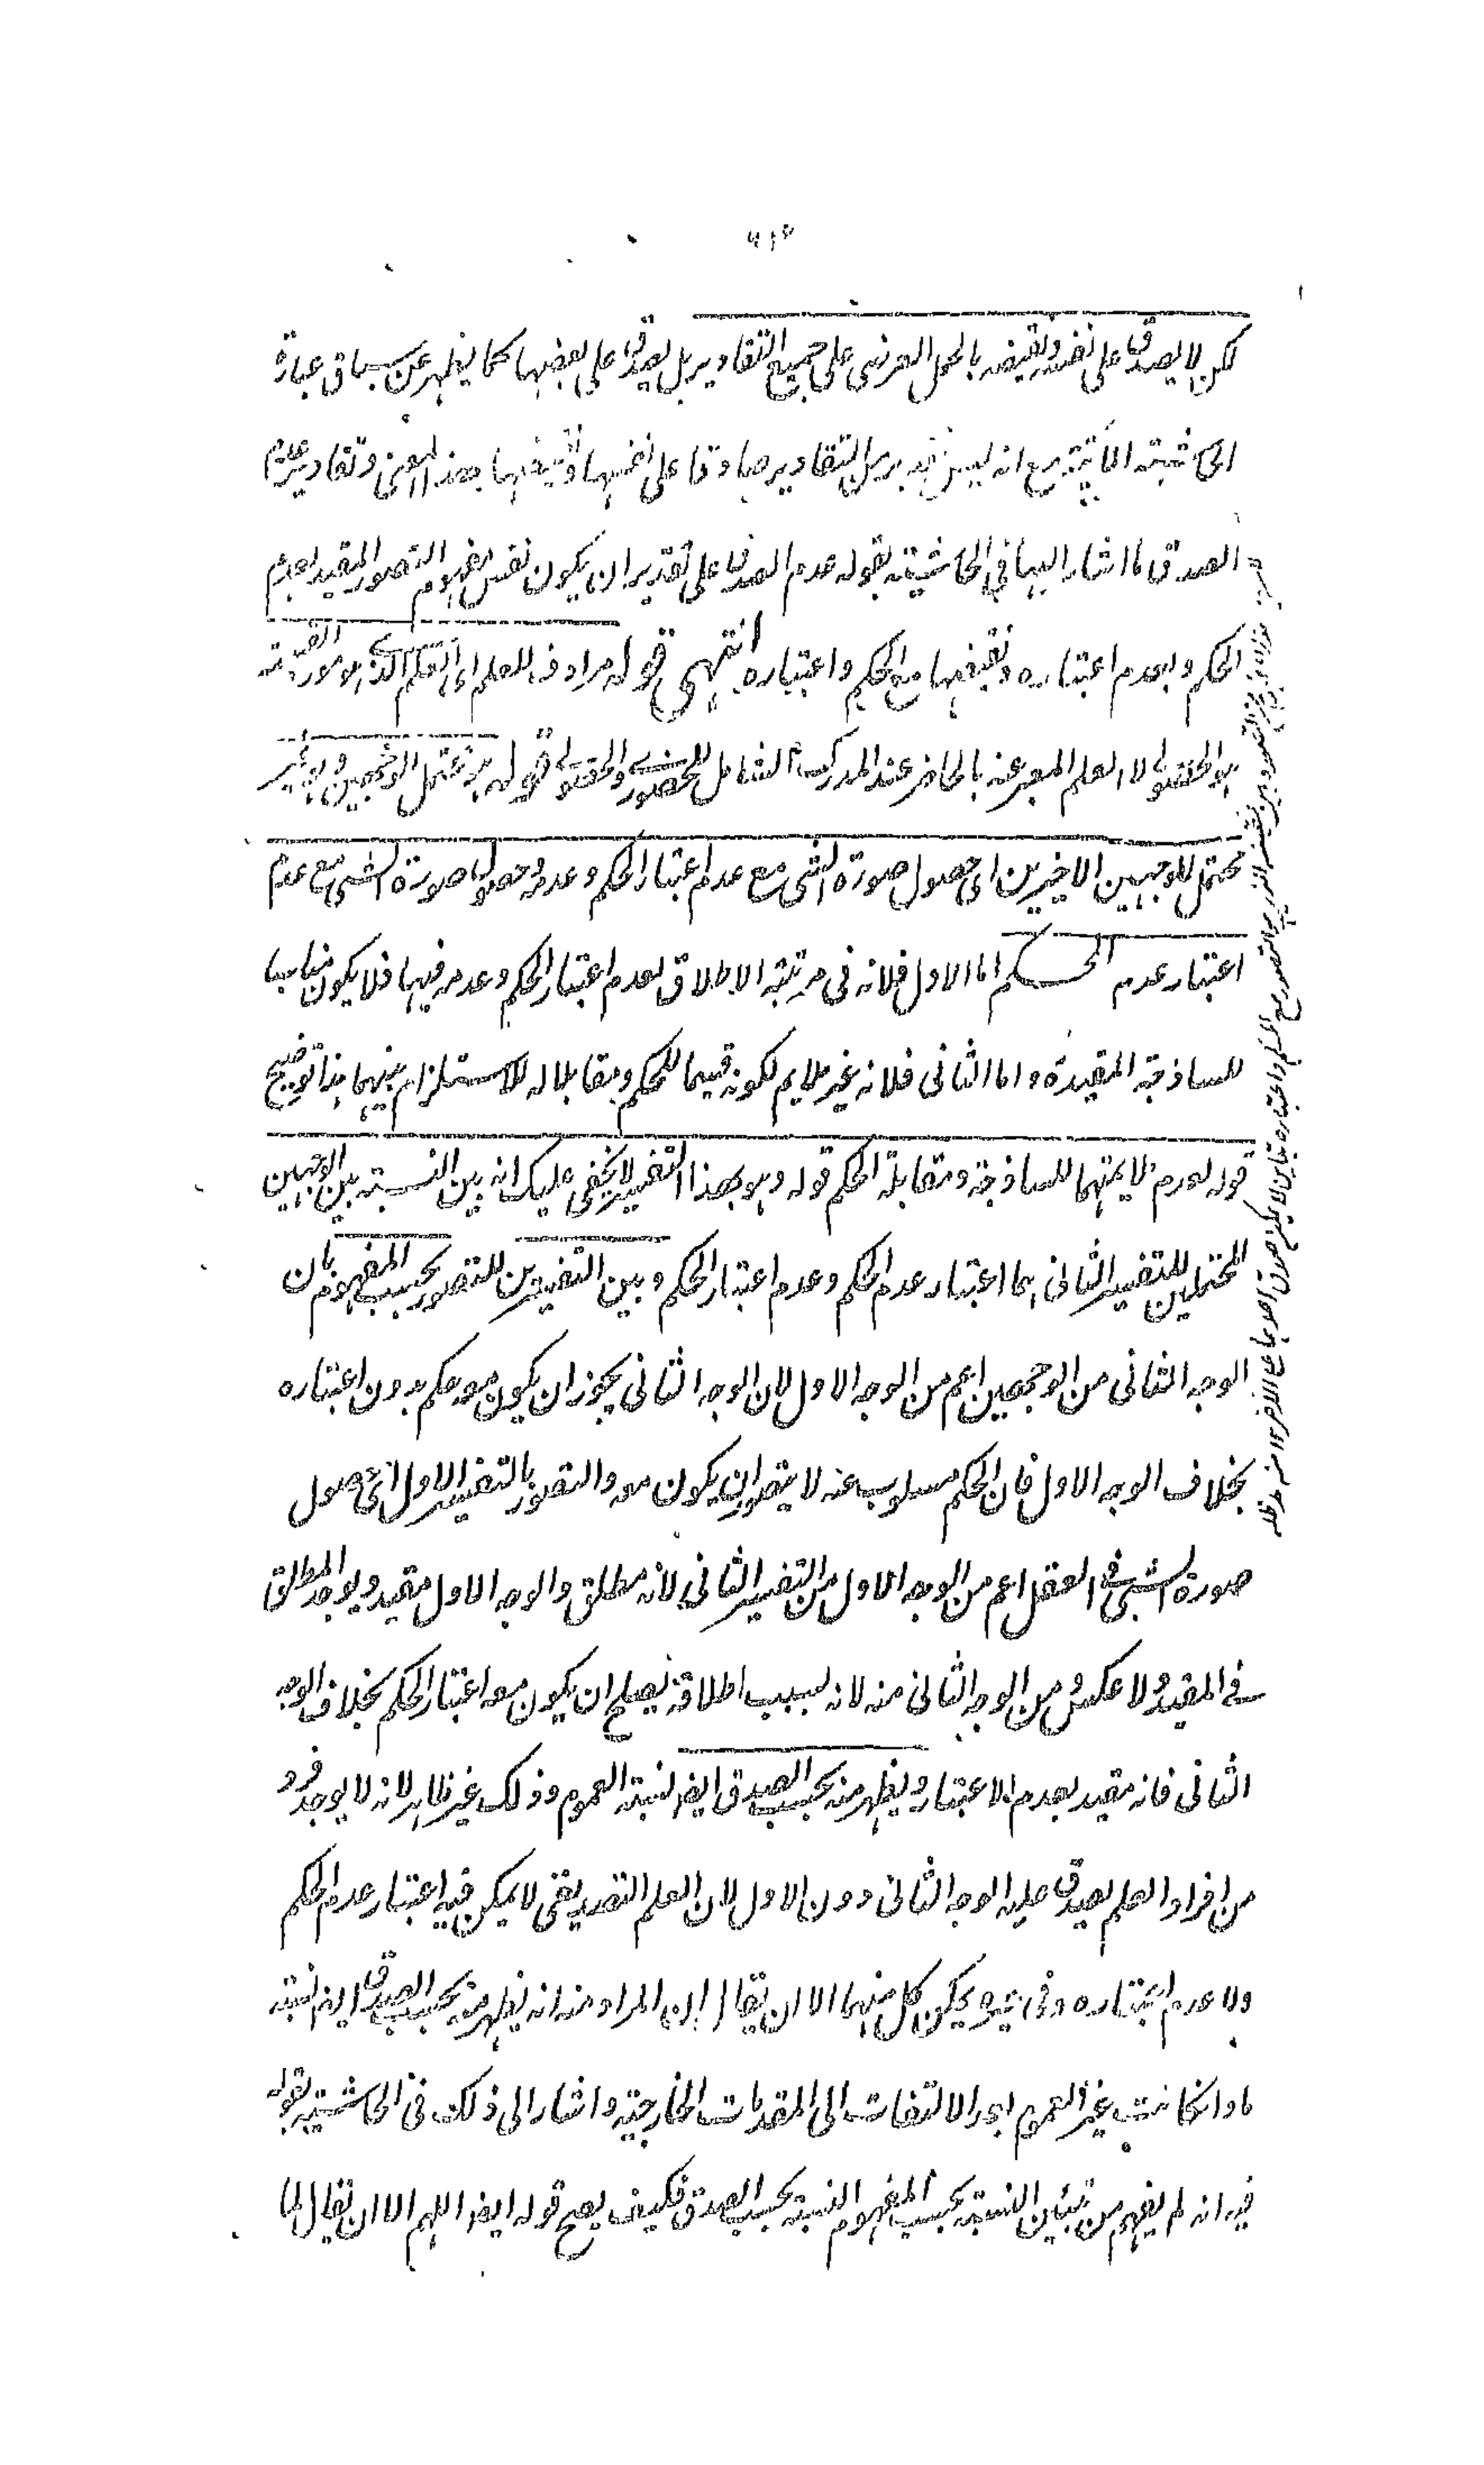 لكن لا يصدق على نفسه ونقيضه بالحمل العرضى على جميع التقادير بل يصدق على بعضها كما يظهر عن سياق عبارة
الحاشية الآتية مع انه ليس التقادير صادقا على نفسها ونقيضها بهذا المعنى وتقادير عدم
الصدق ما اشار اليها فى الحاشية بقوله عدم الصدق على تقدير ان يكون نفس مفهوم التصور المقيد بعدم
الحكم وبعدم اعتباره ونقيضها مع الحكم واعتباره انتهى قوله مرادف للعلم اى العلم الذى هو مورد القسمة
هو الحصولى لا العلم المعبر عنه بالحاضر عند المدرك الشامل للحضورى والحصولى قوله يحتمل الوجهين
محتمل للوجهين الاخيرين اى حصول صورة الشئ مع عدم اعتبار الحكم وعدمه وحصول صورة الشئ مع عدم
اعتبار عدم الحكم اما الاول فلانه فى مرتبة الاطلاق لعدم اعتبار الحكم وعدمه فيها فلا يكون مناسبا
للساذجة المقيدة واما الثانى فلانه غير ملايم لكونه قسيما للحكم ومقابلا له للاستلزام بينهما هذا توضيح
قوله لعدم ملايمتهما للساذجة ومقابلة الحكم قوله وهو بهذا التفسير لا يخفى عليك انه بين النسبة بين الوجهين
المحتملين للتفسير الثانى هما اعتبار عدم الحكم وعدم اعتبار الحكم وبين التفسيرين للتصور بحسب المفهوم بان
الوجه الثانى من الوجهين اعم من الوجه الاول لان الوجه الثانى يجوز ان يكون معه حكم بدون اعتباره
بخلاف الوجه الاول فان الحكم مسلوب عنه لا يتصور ان يكون معه والتصور بالتفسير الاول اى حصول
صورة الشئ فى العقل اعم من الوجه الاول من التفسير الثانى لانه مطلق والوجه الاول مقيد ويوجد المطلق
فى المقيد ولا عكس ومن الوجه الثانى منه لانه بسبب اطلاقه يصلح ان يكون معه اعتبار الحكم بخلاف الوجه
الثانى فانه مقيد بعدم الاعتبار ويظهر منه بحسب الصدق ايضا نسبة العموم وذلك غير ظاهر لانه لا يوجد فرد
من افراد العلم يصدق عليه الوجه الثانى دون الاول لان العلم التصديقى لا يمكن فيه اعتبار عدم الحكم
ولا عدم اعتباره وفى غيره يمكن كل منهما الا ان يقال ان المراد منه انه يظهر منه بحسب الصدق ايضا نسبة
ما وان كانت غير العموم بعد الالتفات الى المقدمات الخارجية واشار الى ذلك فى الحاشية بقوله
فيه انه لم يفهم من تبيين النسبة بحسب المفهوم النسبة بحسب الصدق فكيف يصح قوله ايضا اللهم الا ان يقال لما